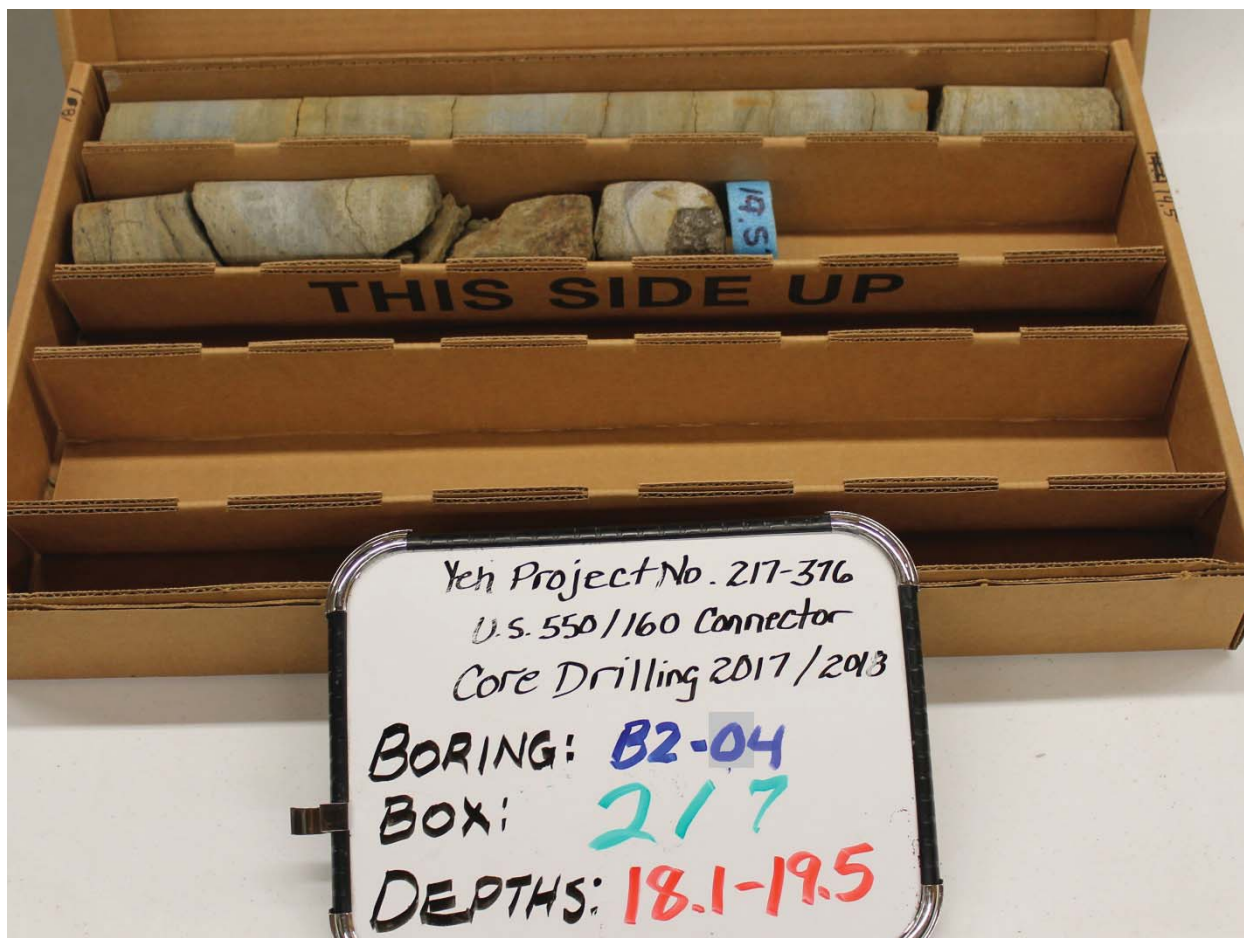 18.1
14.5
19.5'
THIS SIDE UP
Yeh Project No. 217-376
U.S. 550/160 Connector
Core Drilling 2017/2018
BORING: B2-04
BOX: 2/7
DEPTHS: 18.1-19.5